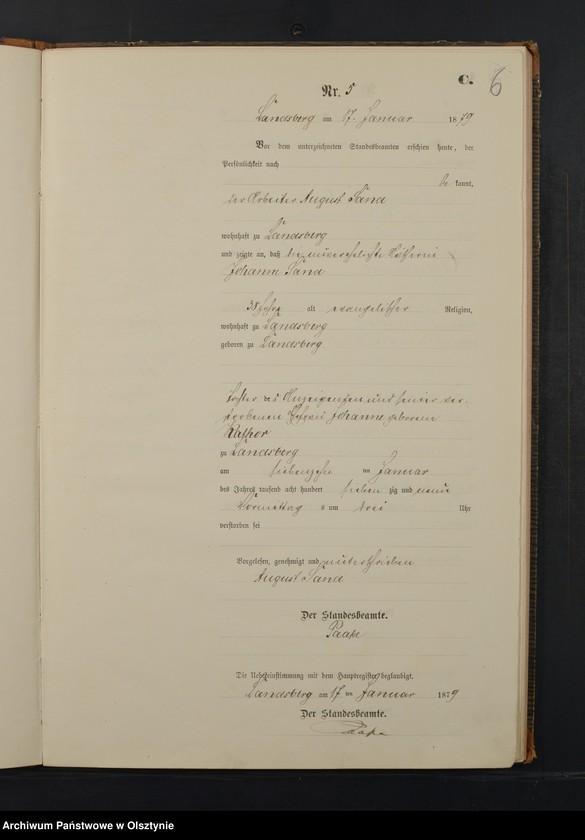 C.
6
Nr. 5
Landsberg am 17. Januar 1879
Vor dem unterzeichneten Standesbeamten erschien heute, der
Persönlichkeit nach
be kannt,
der Arbeiter August Sand
wohnhaft zu Landsberg
und zeigte an, daß die unverehelichte
Johanne Sand
38 Jahre alt evangelischer Religion,
wohnhaft zu Landsberg
geboren zu Landsberg
Tochter des Anzeigenden und seiner ver-
storbenen Ehefrau Johanne geborene
zu Landsberg
am siebenzehn ten Januar
des Jahres tausend acht hundert sieben zig und neun
Vormittag s um drei Uhr
verstorben sei
Vorgelesen, genehmigt und unterschrieben
August Sand
Der Standesbeamte.
Die Uebereinstimmung mit dem Hauptregister beglaubigt.
Landsberg am 17 ten Januar 1879
Der Standesbeamte.
Archiwum Państwowe w Olsztynie